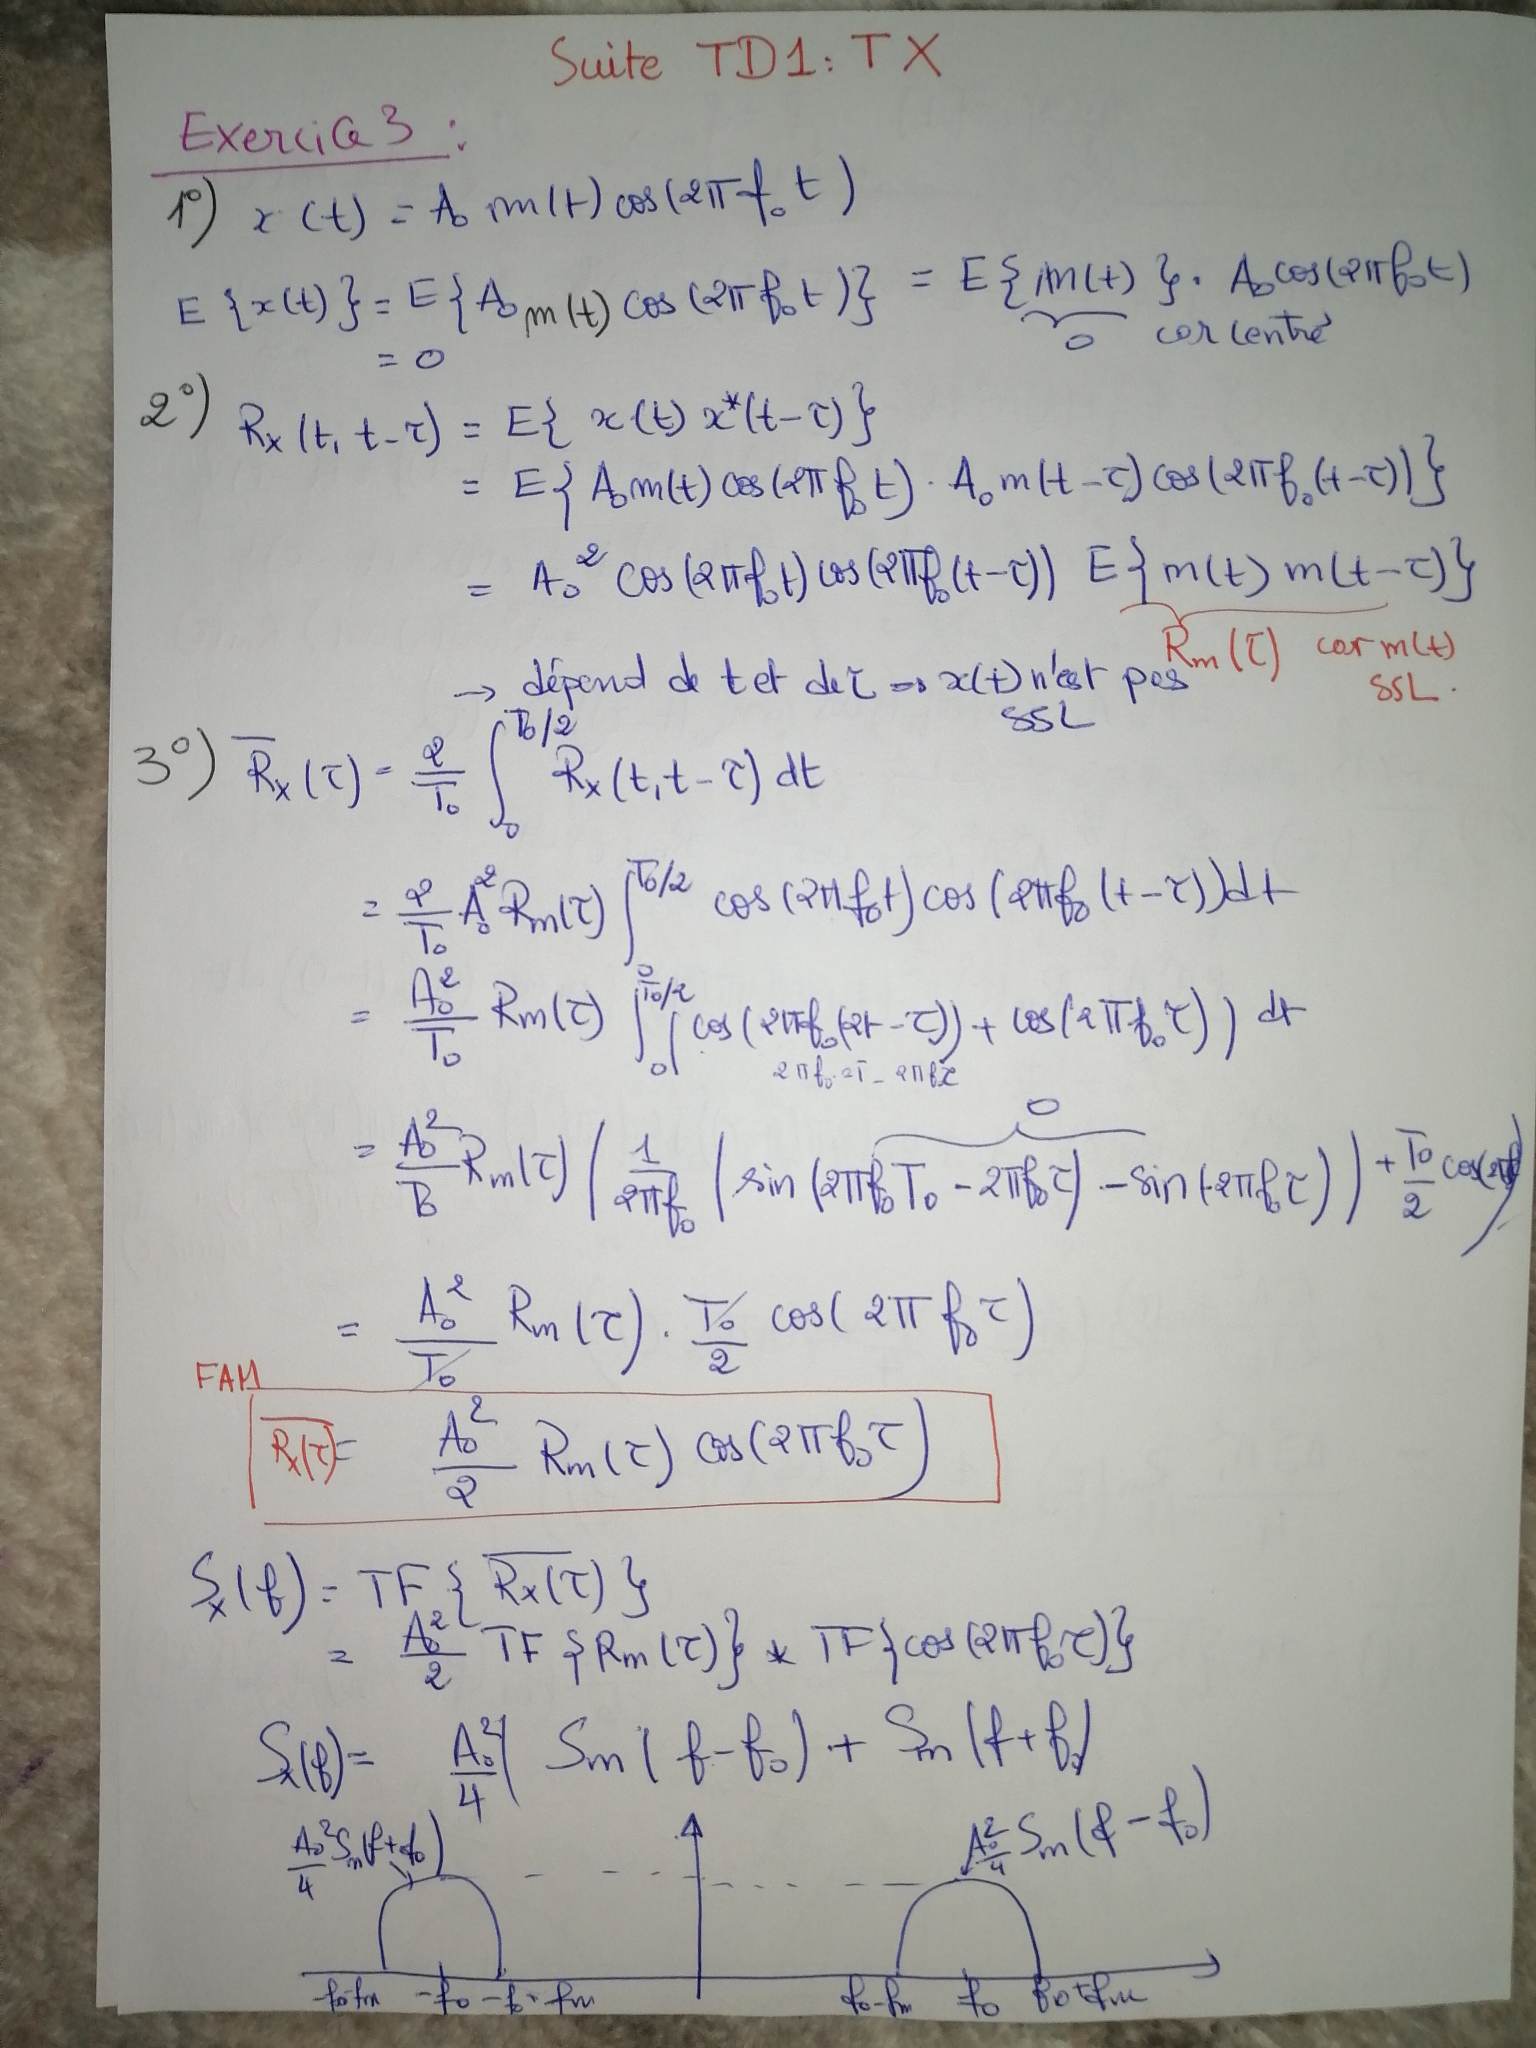 Suite TD1: TX
Exercice 3 :
1°) x(t) = A₀ m(t) cos(2πf₀t)
E{x(t)} = E{A₀ m(t) cos(2πf₀t)} = E{m(t)}. A₀cos(2πf₀t)
= 0
0 car centré
2°) Rₓ(t, t-τ) = E{ x(t) x*(t-τ)}
= E{A₀m(t) cos(2πf₀t) . A₀ m(t-τ) cos(2πf₀(t-τ))}
= A₀² cos(2πf₀t) cos(2πf₀(t-τ)) E{m(t) m(t-τ)}
Rm(τ) car m(t) SSL.
→ dépend de t et de τ ⇒ x(t) n'est pas SSL
3°) R̅ₓ(τ) = 2/T₀ ∫₀^{T₀/2} Rₓ(t,t-τ) dt
= 2/T₀ A₀² Rm(τ) ∫₀^{T₀/2} cos(2πf₀t) cos(2πf₀(t-τ))dt
= A₀²/T₀ Rm(τ) ∫₀^{T₀/2} (cos(2πf₀(2t-τ)) + cos(2πf₀τ)) dt
0
= A₀²/T₀ Rm(τ) (1/2πf₀ (sin(2πf₀T₀-2πf₀τ) - sin(-2πf₀τ)) + T₀/2 cos(2πf
= A₀²/T₀ Rm(τ) . T₀/2 cos(2πf₀τ)
FAM
R̅ₓ(τ) = A₀²/2 Rm(τ) cos(2πf₀τ)
Sₓ(f) = TF{R̅ₓ(τ)}
= A₀²/2 TF{Rm(τ)} * TF{cos(2πf₀τ)}
Sₓ(f) = A₀²/4 ( Sm(f-f₀) + Sm(f+f₀)
A₀²/4 Sm(f+f₀) A₀²/4 Sm(f-f₀)
-f₀-fm -f₀ -f₀+fm f₀-fm f₀ f₀+fm